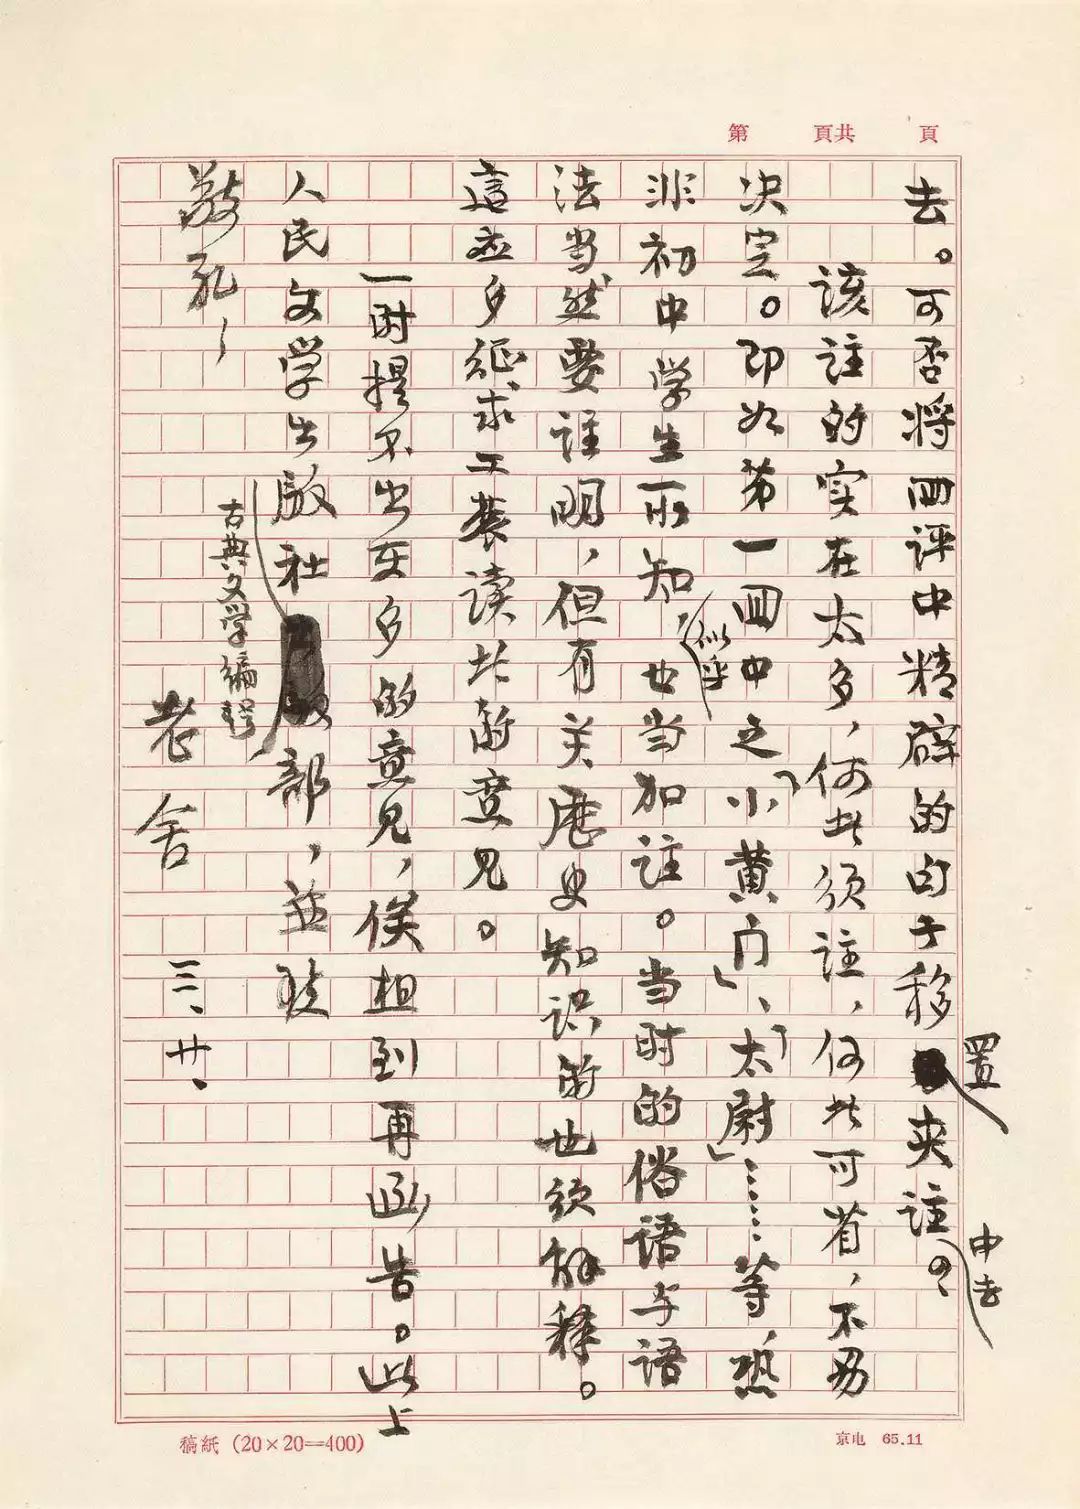 第 頁共 頁
去。可否将回评中精辟的句子移置夹註中去?
该註的实在太多,何者须註,何者可省,不易
决定。即如第一回中之「小黄门」、「太尉」……等,恐
非初中学生所知,似乎也当加註。当时的俗语与语
法当然要註明,但有关历史知识的也须解释。
這应多征求工农读者的意见。
一时提不出更多的意见,俟想到再函告。此上
人民文学出版社古典文学编辑部,並致
敬礼!
老舍 三、廿、
稿紙(20×20=400)
京电 65.11